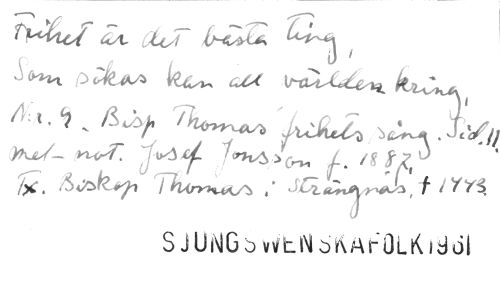 Frihet är det bästa ting,
Som sökas kan all världen kring,
Nr. 9. Bisp Thomas frihets sång. Sid. 11.
met- not. Josef Jonsson f. 1887,
Tx. Biskop Thomas i Strängnäs, † 1443.
SJUNG SWENSKA FOLK 1961